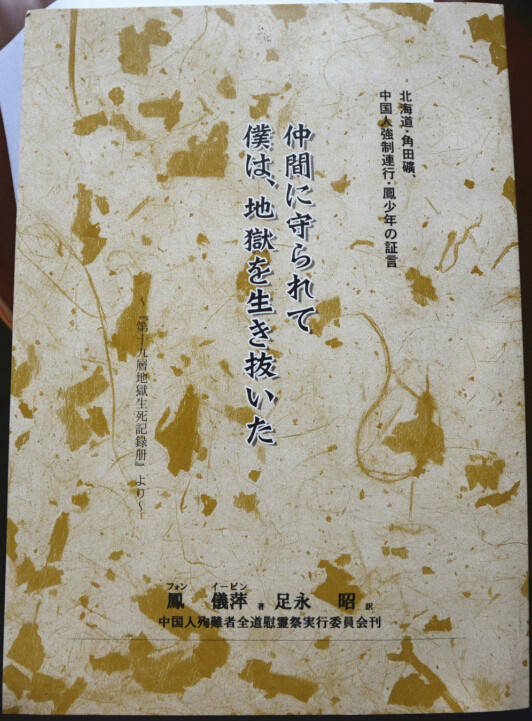 北海道・角田礦、
中国人強制連行・鳳少年の証言
仲間に守られて
僕は、地獄を生き抜いた
～『第十九層地獄生死記錄册』より～
フォン イーピン
鳳 儀萍 著 足永 昭 訳
中国人殉難者全道慰霊祭実行委員会刊